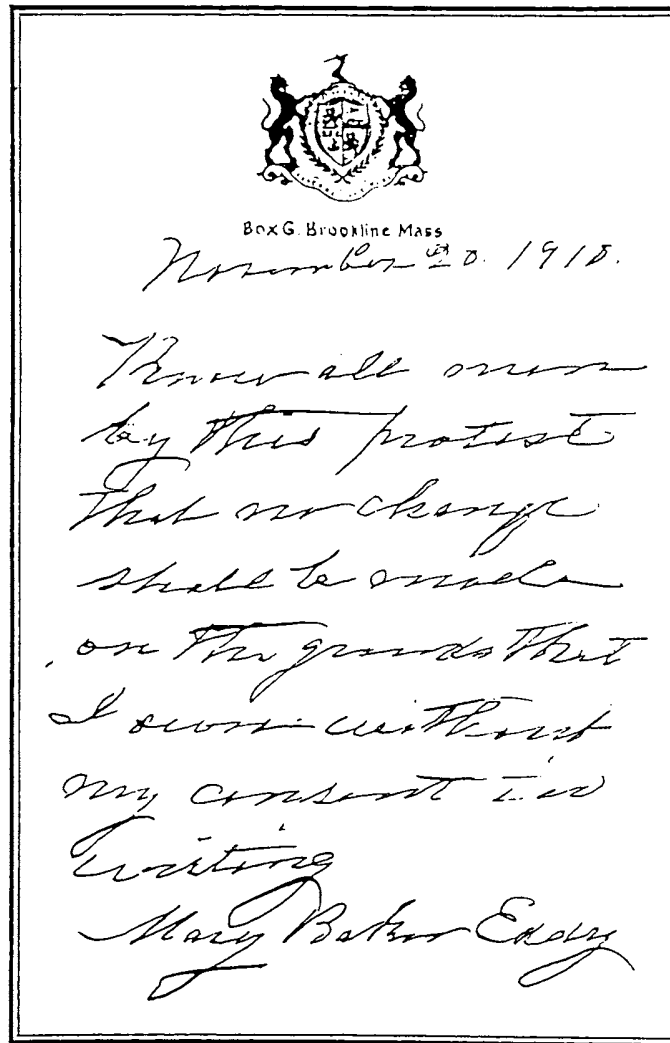 Box G. Brookline Mass
November 20. 1910.
Know all men
by this protest
that no change
shall be made
on the grounds that
I own without
my consent in
writing
Mary Baker Eddy